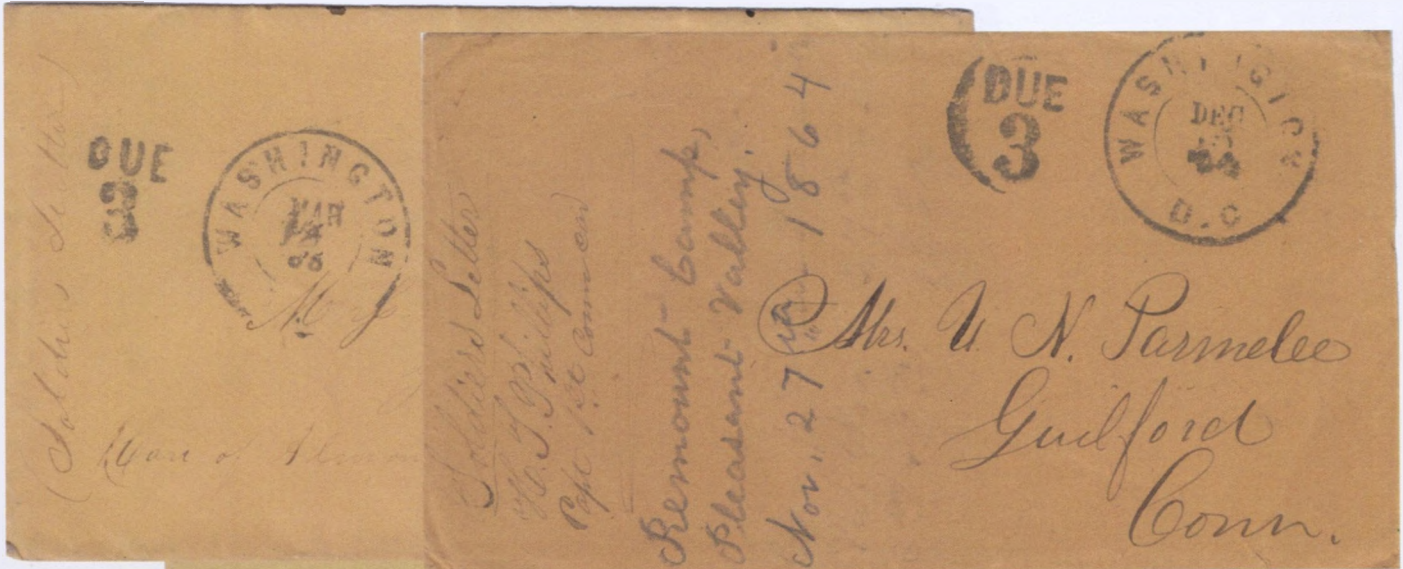 (Soldiers Letter)
DUE
3
WASHINGTON
MAR
Care of
Soldiers Letter
H. T. Phillips
Capt 1st Conn Cav
Remount Camp,
Pleasant Valley.
Nov. 27th 1864
DUE
3
WASHINGTON
DEC
D.C
Mrs. U. N. Parmelee
Guilford
Conn.